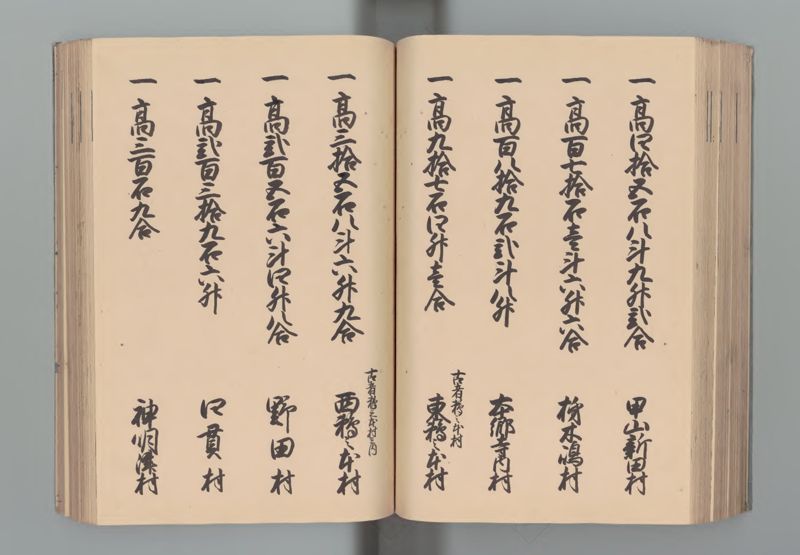 一 高四拾五石八斗九升弐合 甲山新田村
一 高百七拾石壱斗六升六合 栃木嶋村
一 高百八拾九石弐斗八升 本郷 村
一 高九拾七石四升壱合 東 之本村
一 高三拾五石八斗六升九合 西 之本村
一 高弐百五石六斗四升八合 野田村
一 高弐百三拾九石六升 口貫村
一 高三百石九合 神明 村